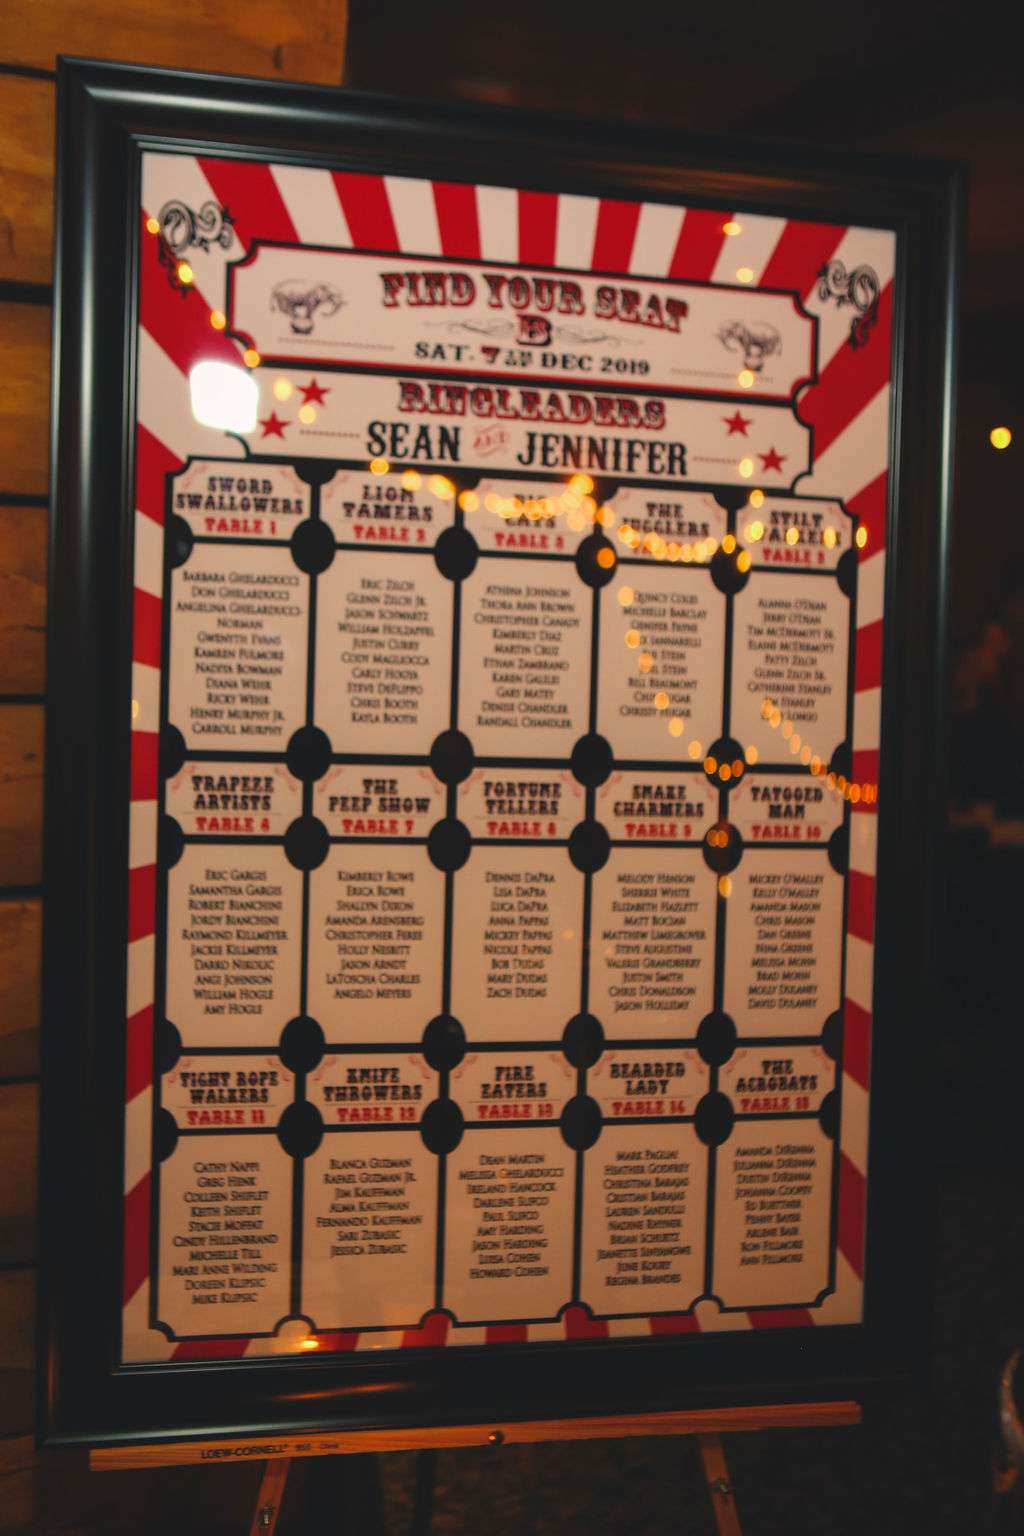 FIND YOUR SEAT
SAT. 7TH DEC 2019
RINGLEADERS
SEAN AND JENNIFER
SWORD
SWALLOWERS
TABLE 1
BARBARA GHELARDUCCI
DON GHELARDUCCI
ANGELINA GHELARDUCCI-
NORMAN
GWENYTH EVANS
KAMREN FULMORE
NADIYA BOWMAN
DIANA WEHR
RICKY WEHR
HENRY MURPHY JR.
CARROLL MURPHY
LION
TAMERS
TABLE 2
ERIC ZILCH
GLENN ZILCH JR.
JASON SCHWARTZ
WILLIAM HOLZAPFEL
JUSTIN CURRY
CODY MAGLIOCCA
CARLY HOOVA
STEVE DEFLIPPO
CHRIS BOOTH
KAYLA BOOTH
BIG
CATS
TABLE 3
ATHENA JOHNSON
THORA ANN BROWN
CHRISTOPHER CANADY
KIMBERLY DIAZ
MARTIN CRUZ
ETHAN ZAMBRANO
KAREN GALLEI
GARY MATEY
DENISE CHANDLER
RANDALL CHANDLER
THE
JUGGLERS
TABLE
QUINCY COLES
MICHELLE BARCLAY
JENIFER PAYNE
IANNARELLI
STEIN
STEIN
BILL BEAUMONT
HUGAR
CHRISSY HUGAR
STILT
WALKERS
TABLE 5
ALANNA O'DEAN
JERRY O'DEAN
TIM MCDERMOTT SR.
ELAINE MCDERMOTT
PATTY ZILCH
GLENN ZILCH SR.
CATHERINE STANLEY
STANLEY
LONGO
TRAPEZE
ARTISTS
TABLE 6
ERIC GARGIS
SAMANTHA GARGIS
ROBERT BIANCHINI
JORDY BIANCHINI
RAYMOND KILLMEYER
JACKIE KILLMEYER
DARKO NIKOLIC
ANGI JOHNSON
WILLIAM HOGLE
AMY HOGLE
THE
PEEP SHOW
TABLE 7
KIMBERLY ROWE
ERICA ROWE
SHALLYN DIXON
AMANDA ARENSBERG
CHRISTOPHER FEREE
HOLLY NESBITT
JASON ARNDT
LATOSCHA CHARLES
ANGELO MEYERS
FORTUNE
TELLERS
TABLE 8
DENNIS DAPRA
LISA DAPRA
LUCA DAPRA
ANNA PAPPAS
MICKEY PAPPAS
NICOLE PAPPAS
BOB DUDAS
MARY DUDAS
ZACH DUDAS
SNAKE
CHARMERS
TABLE 9
MELODY HENSON
SHERRIE WHITE
ELIZABETH HAZLETT
MATT BOCIAN
MATTHEW LIMEGROVER
STEVE AUGUSTINE
VALERIE GRANDBERRY
JUSTIN SMITH
CHRIS DONALDSON
JASON HOLLIDAY
TATOOED
MAN
TABLE 10
MICKEY O'MALLEY
KELLY O'MALLEY
AMANDA MASON
CHRIS MASON
DAN GREENE
NINA GREENE
MELISSA MOHN
BRAD MOHN
MOLLY DULANEY
DAVID DULANEY
TIGHT ROPE
WALKERS
TABLE 11
CATHY NAPPI
GREG HENK
COLLEEN SHIFLET
KEITH SHIFLET
STACIE MOFFAT
CINDY HILLENBRAND
MICHELLE TILL
MARI ANNE WILDING
DOREEN KLIPSIC
MIKE KLIPSIC
KNIFE
THROWERS
TABLE 12
BLANCA GUZMAN
RAFAEL GUZMAN JR.
JIM KAUFFMAN
ALMA KAUFFMAN
FERNANDO KAUFFMAN
SARI ZUBASIC
JESSICA ZUBASIC
FIRE
EATERS
TABLE 13
DEAN MARTIN
MELISSA GHELARDUCCI
IRELAND HANCOCK
DARLENE SUFCO
PAUL SUFCO
AMY HARDING
JASON HARDING
LUISA COHEN
HOWARD COHEN
BEARDED
LADY
TABLE 14
MARK PAGLIAI
HEATHER GODFREY
CHRISTINA BARAJAS
CRISTIAN BARAJAS
LAUREN SANDULLI
NADINE RHYNER
BRIAN SCHUETZ
JEANETTE
JUNE KOURY
REGINA BRANDES
THE
ACROBATS
TABLE 15
AMANDA DIRENNA
JULIANNA DIRENNA
DUSTIN DIRENNA
JOHANNA COOPEY
ED BUETTNER
PENNY BAYER
ARLENE BAIR
RON FILLMORE
ANN FILLMORE
LOEW-CORNELL 955 China